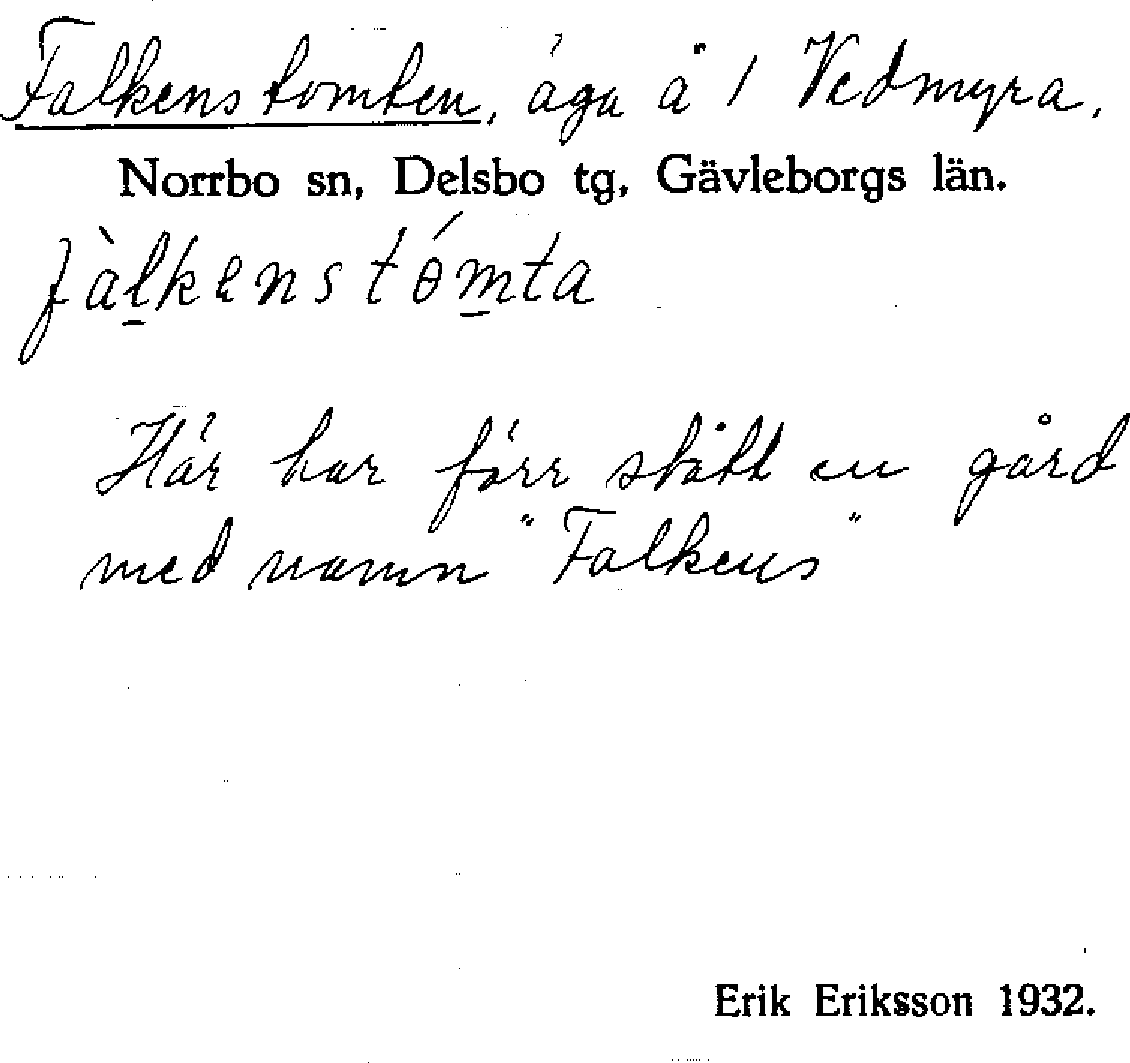 Falkenstomten, äga å 1 Vedmyra.
Norrbo sn, Delsbo tg, Gävleborgs län.
fàlkenstómta
Här har förr stått en gård
med namn "Falkens"
Erik Eriksson 1932.